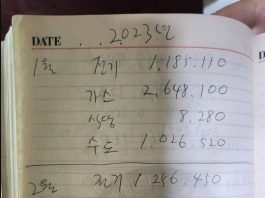 DATE . . 2023년
1월 전기 1.185.110
가스 2.648.100
식당 8.280
수도 1.026.520
2월 전기 1.256.450